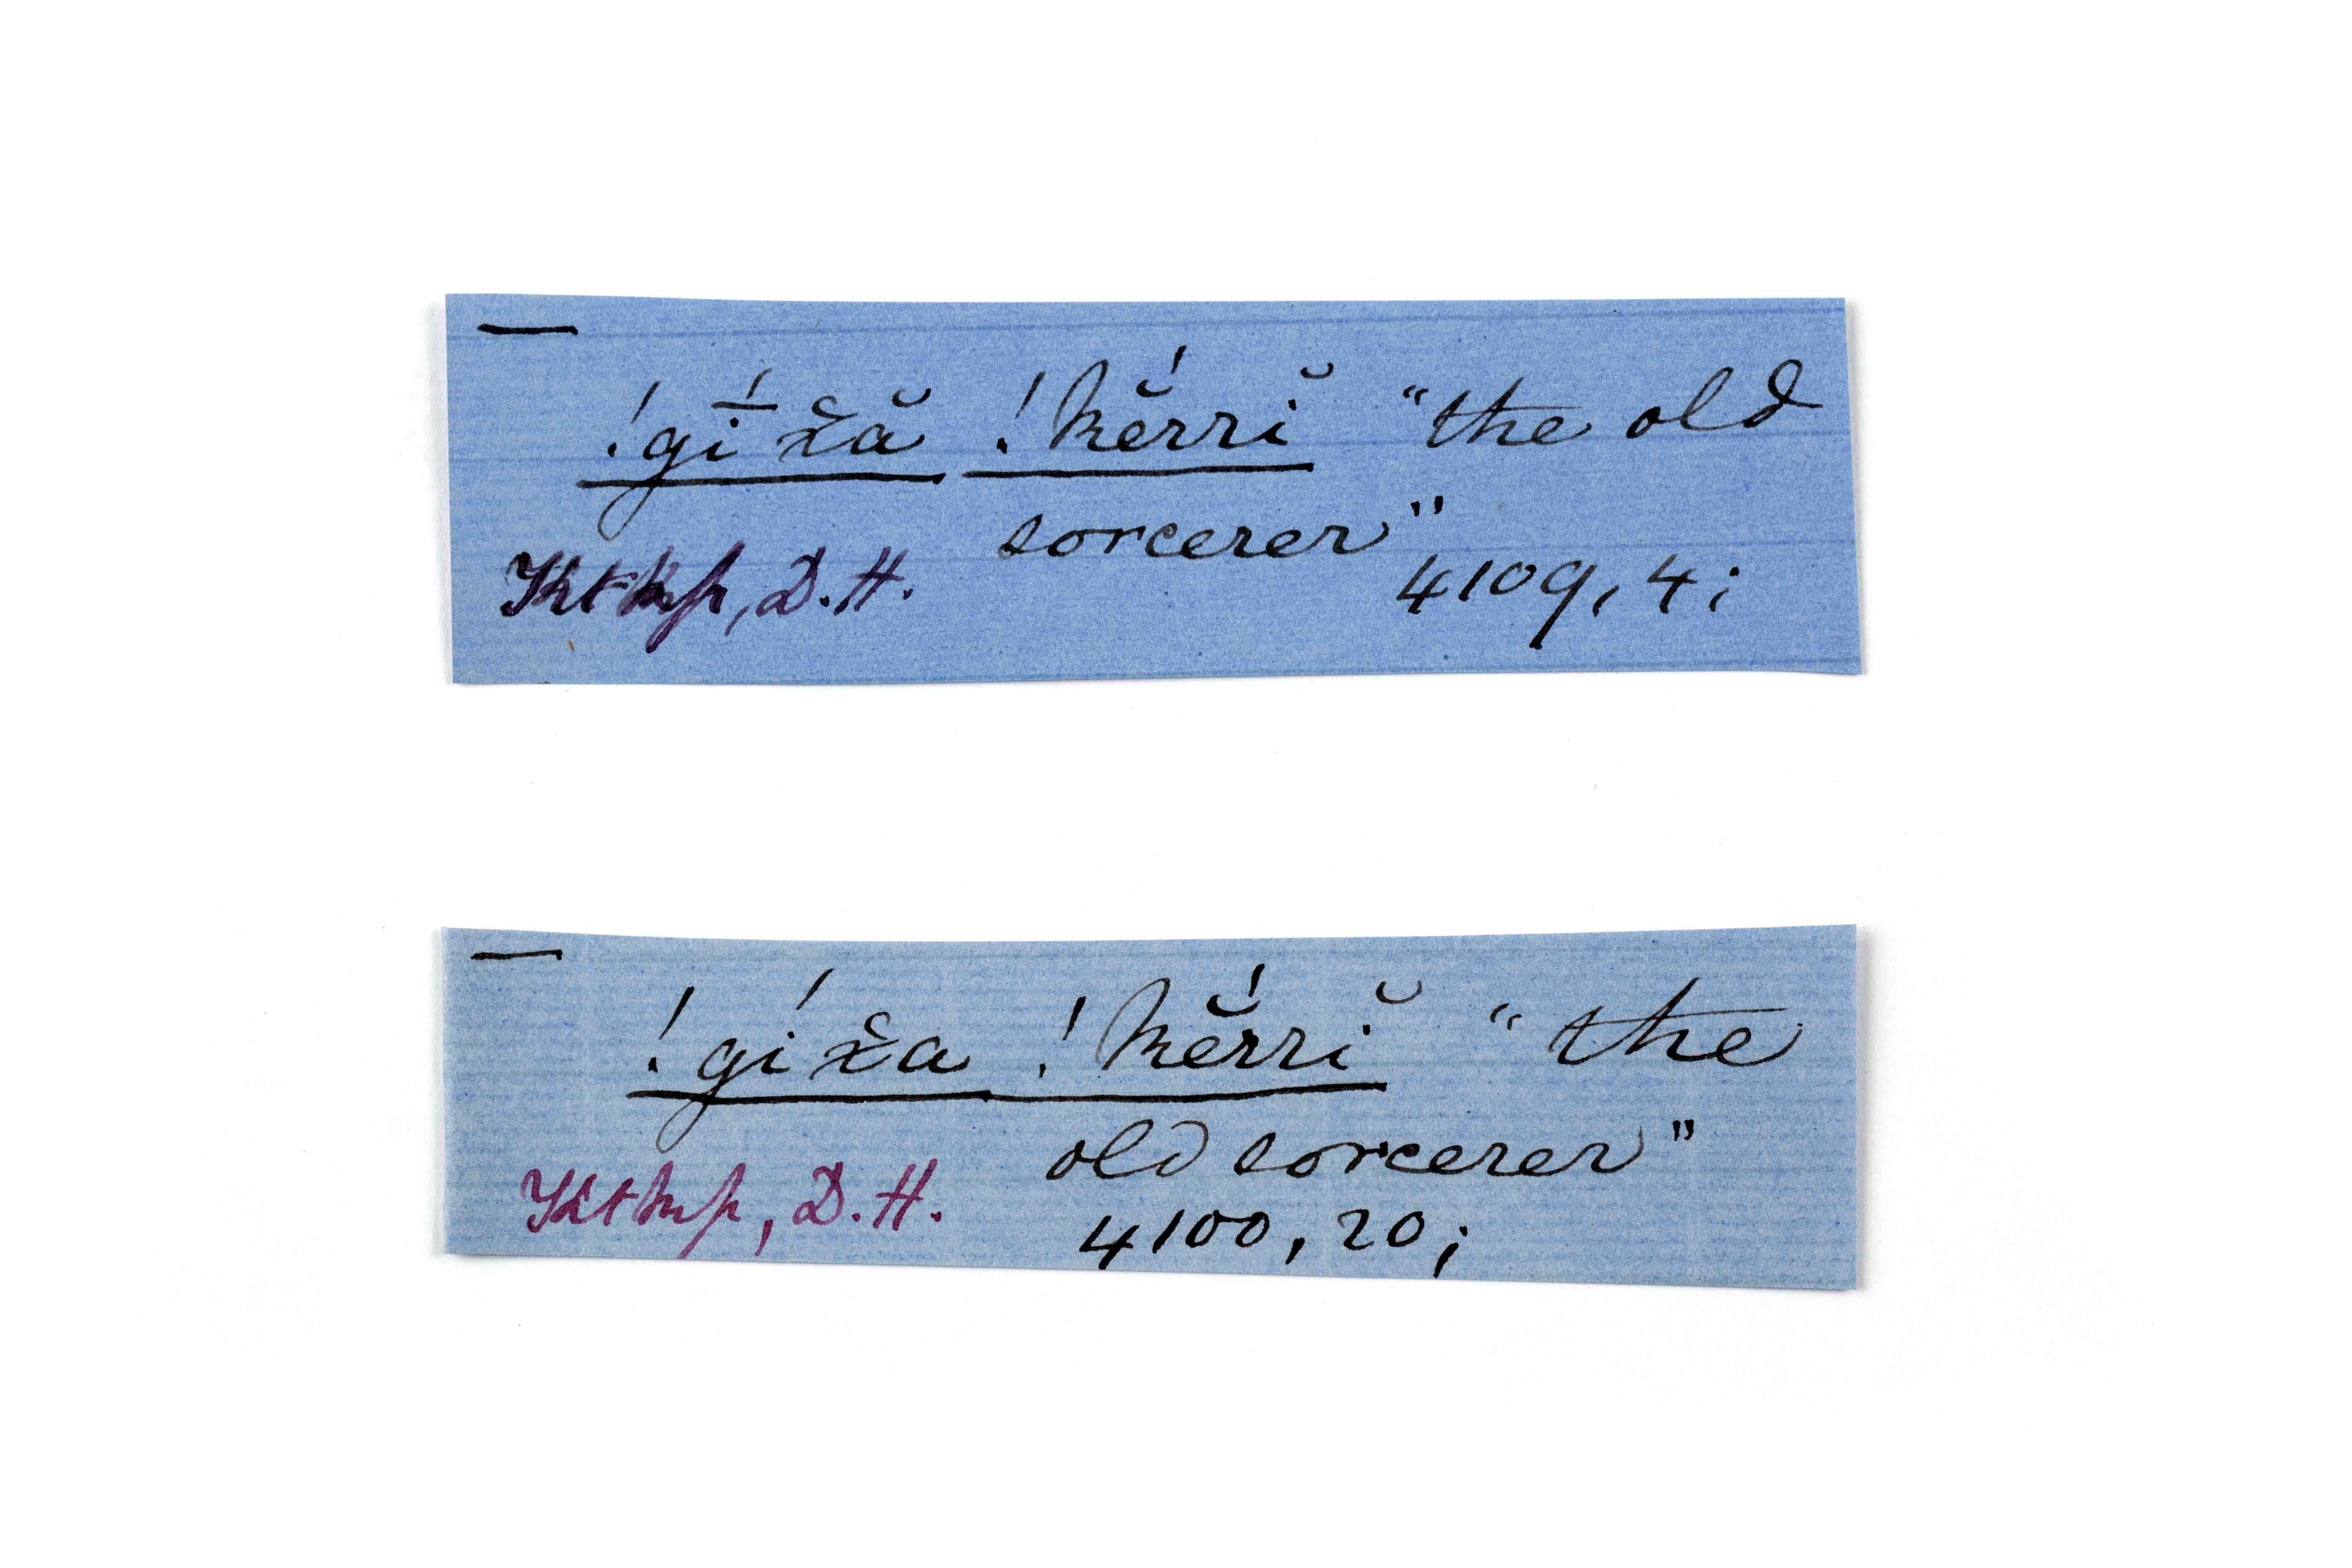 —
!gī́ x̌ă !kĕ́rrĭ “the old
sorcerer”
Ktkp, D.H. 4109, 4;
—
!gí x̌a !kĕ́rrĭ “the
old sorcerer”
Ktkp, D.H. 4100, 20;